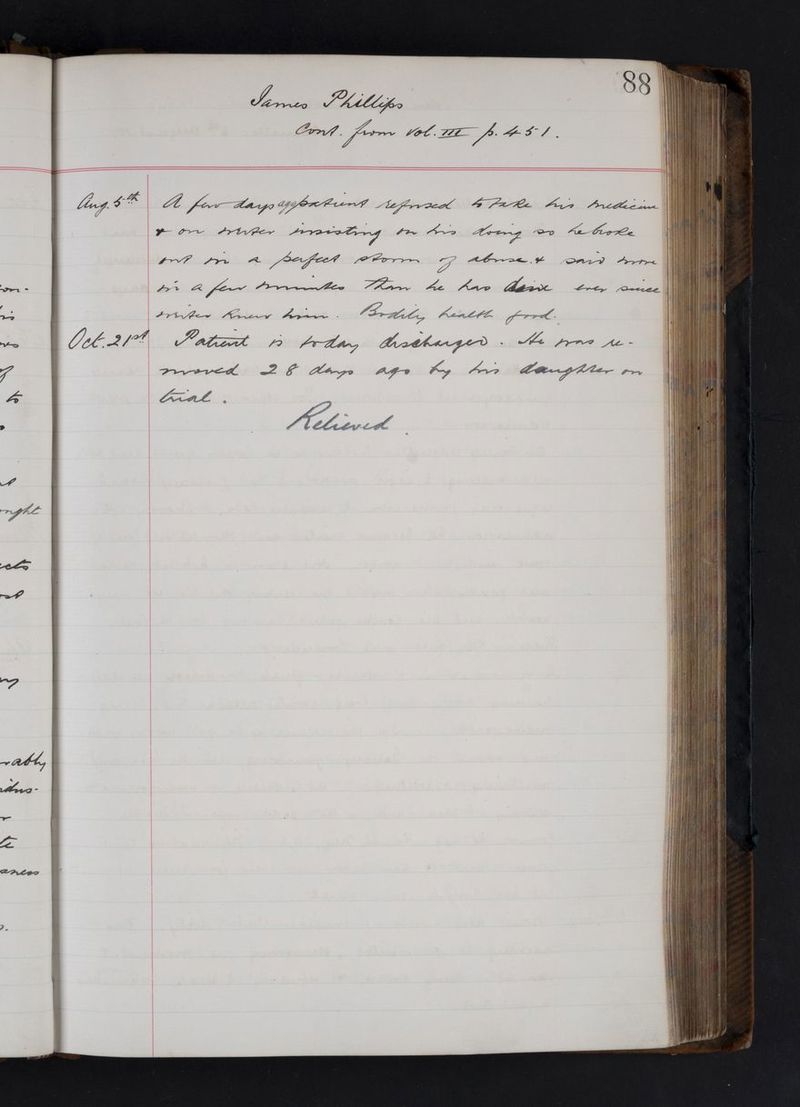 88
James Phillips
Cont. from Vol. III p. 451.
Aug. 5th A few days ago patient refused to take his medicine
& on writer insisting on his doing so he broke
out in a perfect storm of abuse & said more
in a few minutes than he has done ever since
writer knew him. Bodily health good.
Oct. 21st Patient is today discharged. He was re-
moved 28 days ago by his daughter on
trial.
Relieved.